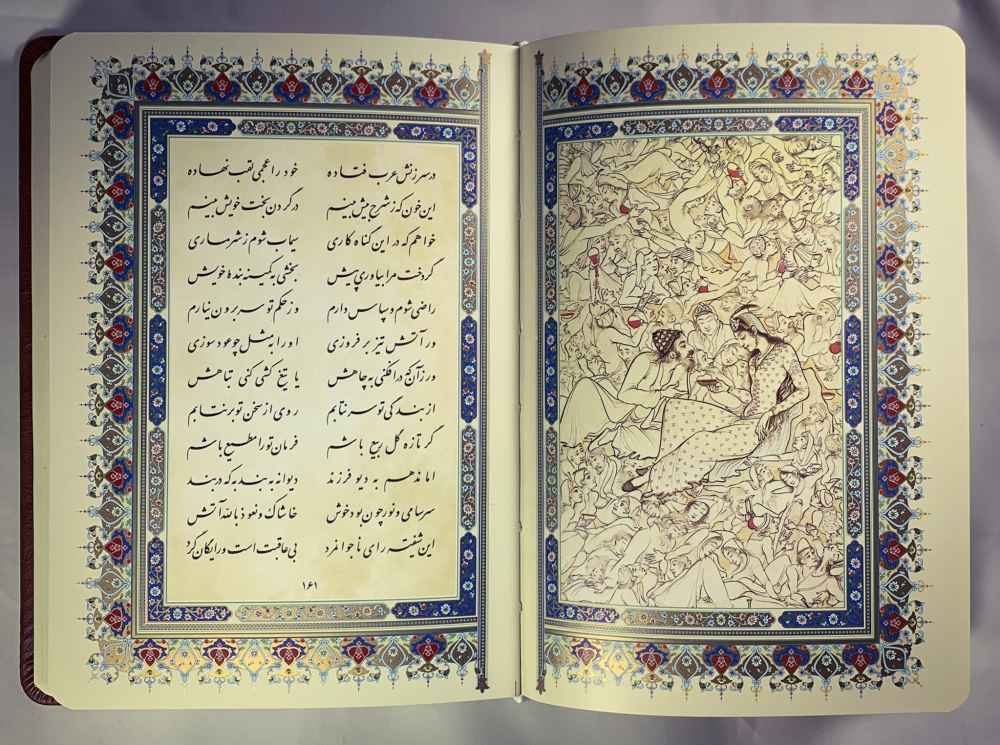 در سرزنش عرب فتاده خود را عجمی لقب نهاده
این خون که ز شرح بیش بینم در گردن بخت خویش بینم
خواهم که در این گناه کاری سیماب شوم ز شرمساری
گر دخت مرا بیاوری پیش بخشی به کمینه بندهٔ خویش
راضی شوم و سپاس دارم وز حکم تو سر برون نیارم
ور آتش تیز بر فروزی او را به مثل چو عود سوزی
ور زآن که در افکنی به چاهش یا تیغ کشی کنی تباهش
از بندگی تو سر نتابم روی از سخن تو بر نتابم
گر تازه گل ربیع باشم فرمان تو را مطیع باشم
اما ندهم به دیو فرزند دیوانه به بند به که در بند
سرسامی و نور چون بود خوش خاشاک و نعوذ بالله آتش
این شیفته رای ناجوانمرد بی عاقبت است و رایگان گرد
۱۶۱